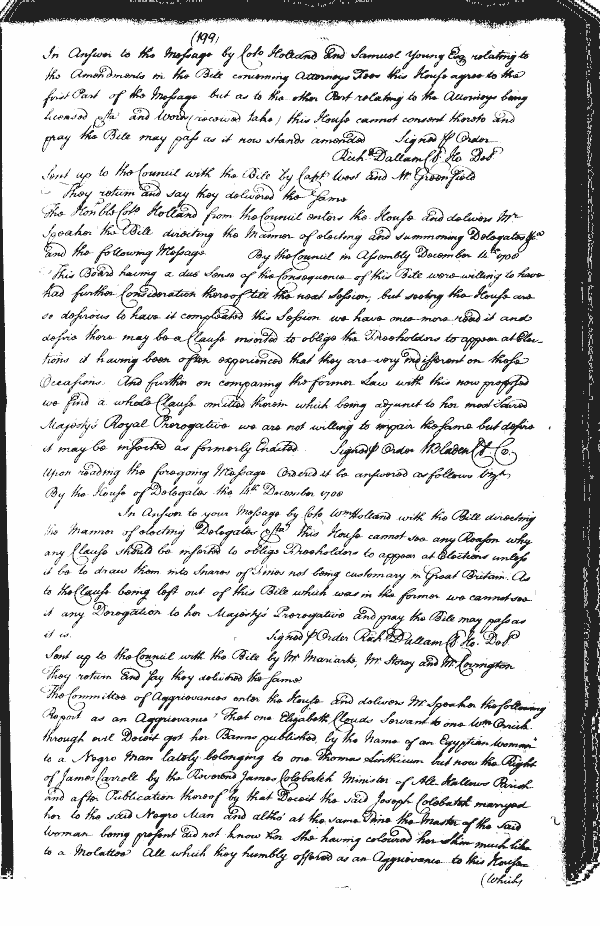 (199)
In Answer to the Message by Colo Holland and Samuel Young Esq relating to
the Amendments in the Bill concerning Attorneys Fees this House agree to the
first Part of the Message but as to the other Part relating to the Attorneys being
licensed &ca and Words (received take) this House cannot consent thereto and
pray the Bill may pass as it now stands amended Signed P Order
Richd Dallam Cl Ho Delt
Sent up to the Council with the Bill by Capt West and Mr Greenfield
They return and say they delivered the same
The Honble Colo Holland from the Council enters the House and delivers Mr
Speaker the Bill directing the Manner of electing and summoning Delegates &ca
and the following Message By the Council in Assembly December 4th 1708
This Board having a due Sense of the Consequence of this Bill were willing to have
had further Consideration thereof till the next Session, but seeing the House are
so desirous to have it compleated this Session we have once more read it and
desire there may be a Clause inserted to oblige the Freeholders to appear at Elec-
tions it having been often experienced that they are very indifferent on those
Occasions. And further on comparing the former Law with this now proposed
we find a whole Clause omitted therein which being adjunct to her most Sacred
Majesty's Royal Prerogative we are not willing to impair the same but desire
it may be inserted as formerly Enacted Signed P Order W Bladen Cl Co.
Upon reading the foregoing Message Ordered it be answered as follows Vizt.
By the House of Delegates the 4th December 1708
In Answer to your Message by Colo Wm Holland with the Bill directing
the Manner of electing Delegates &ca this House cannot see any Reason why
any Clause should be inserted to oblige Freeholders to appear at Elections unless
it be to draw them into Snares of Fines not being customary in Great Britain. As
to the Clause being left out of this Bill which was in the former we cannot see
it any Derogation to her Majesty's Prerogative and pray the Bill may pass as
it is. Signed P Order Richd Dallam Cl Ho. Delt
Sent up to the Council with the Bill by Mr Mariarte, Mr Storey and Mr Covington
they return and say they delivered the same
The Committee of Aggrievances enter the House and delivers Mr Speaker the following
Report as an Aggrievance "That one Elizabeth Clouds Servant to one Wm
through evil Deceit got her Banns published by the Name of an Egyptian Woman"
to a Negro Man lately belonging to one Thomas Linthicum but now the Right
of James Carroll by the Reverend James Colebatch Minister of All Hallows Parish
and after Publication thereof by that Deceit the said Joseph Colebatch marryed
her to the said Negro Man and altho' at the same Time the Master of the said
Woman being present did not know her she having coloured her Skin much like
to a Molattoe All which they humbly offered as an Aggrievance to this House
(Which